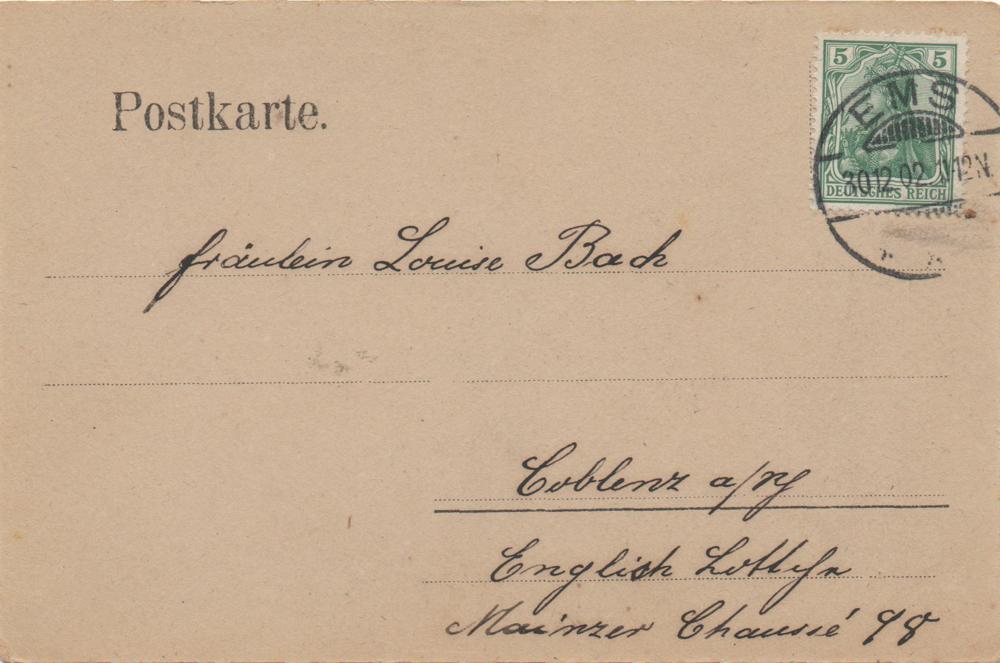 5 5
Postkarte.
EMS
30.12.02. 11-12N.
DEUTSCHES REICH
fräulein Louise Bach
Coblenz a/Rh
English
Mainzer Chaussé 98